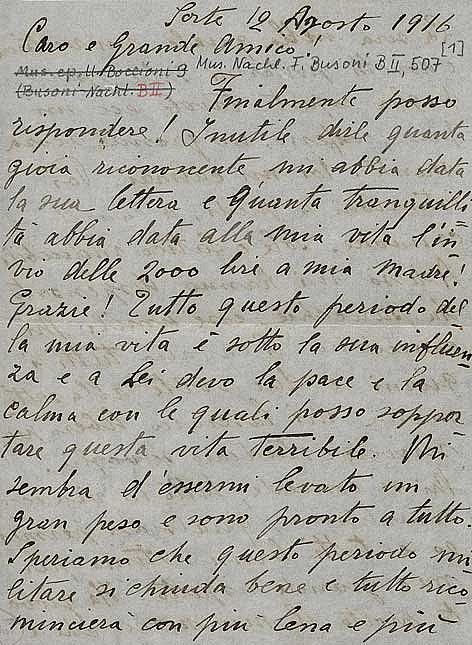 Sorte 12 Agosto 1916
Caro e Grande Amico!
[1]
Mus. ep. U. Boccioni 9
Mus. Nachl. F. Busoni B II, 507
(Busoni-Nachl. B II)
Finalmente posso
rispondere! Inutile dirle quanta
gioia riconoscente mi abbia data
la sua lettera e quanta tranquilli=
tà abbia data alla mia vita l'in=
vio delle 2000 lire a mia madre!
Grazie! Tutto questo periodo del
la mia vita è sotto la sua influen=
za e a Lei devo la pace e la
calma con le quali posso soppor
tare questa vita terribile. Mi
sembra d'essermi levato un
gran peso e sono pronto a tutto.
Speriamo che questo periodo mi
litare si chiuda bene e tutto rico
mincierà con piu lena e più